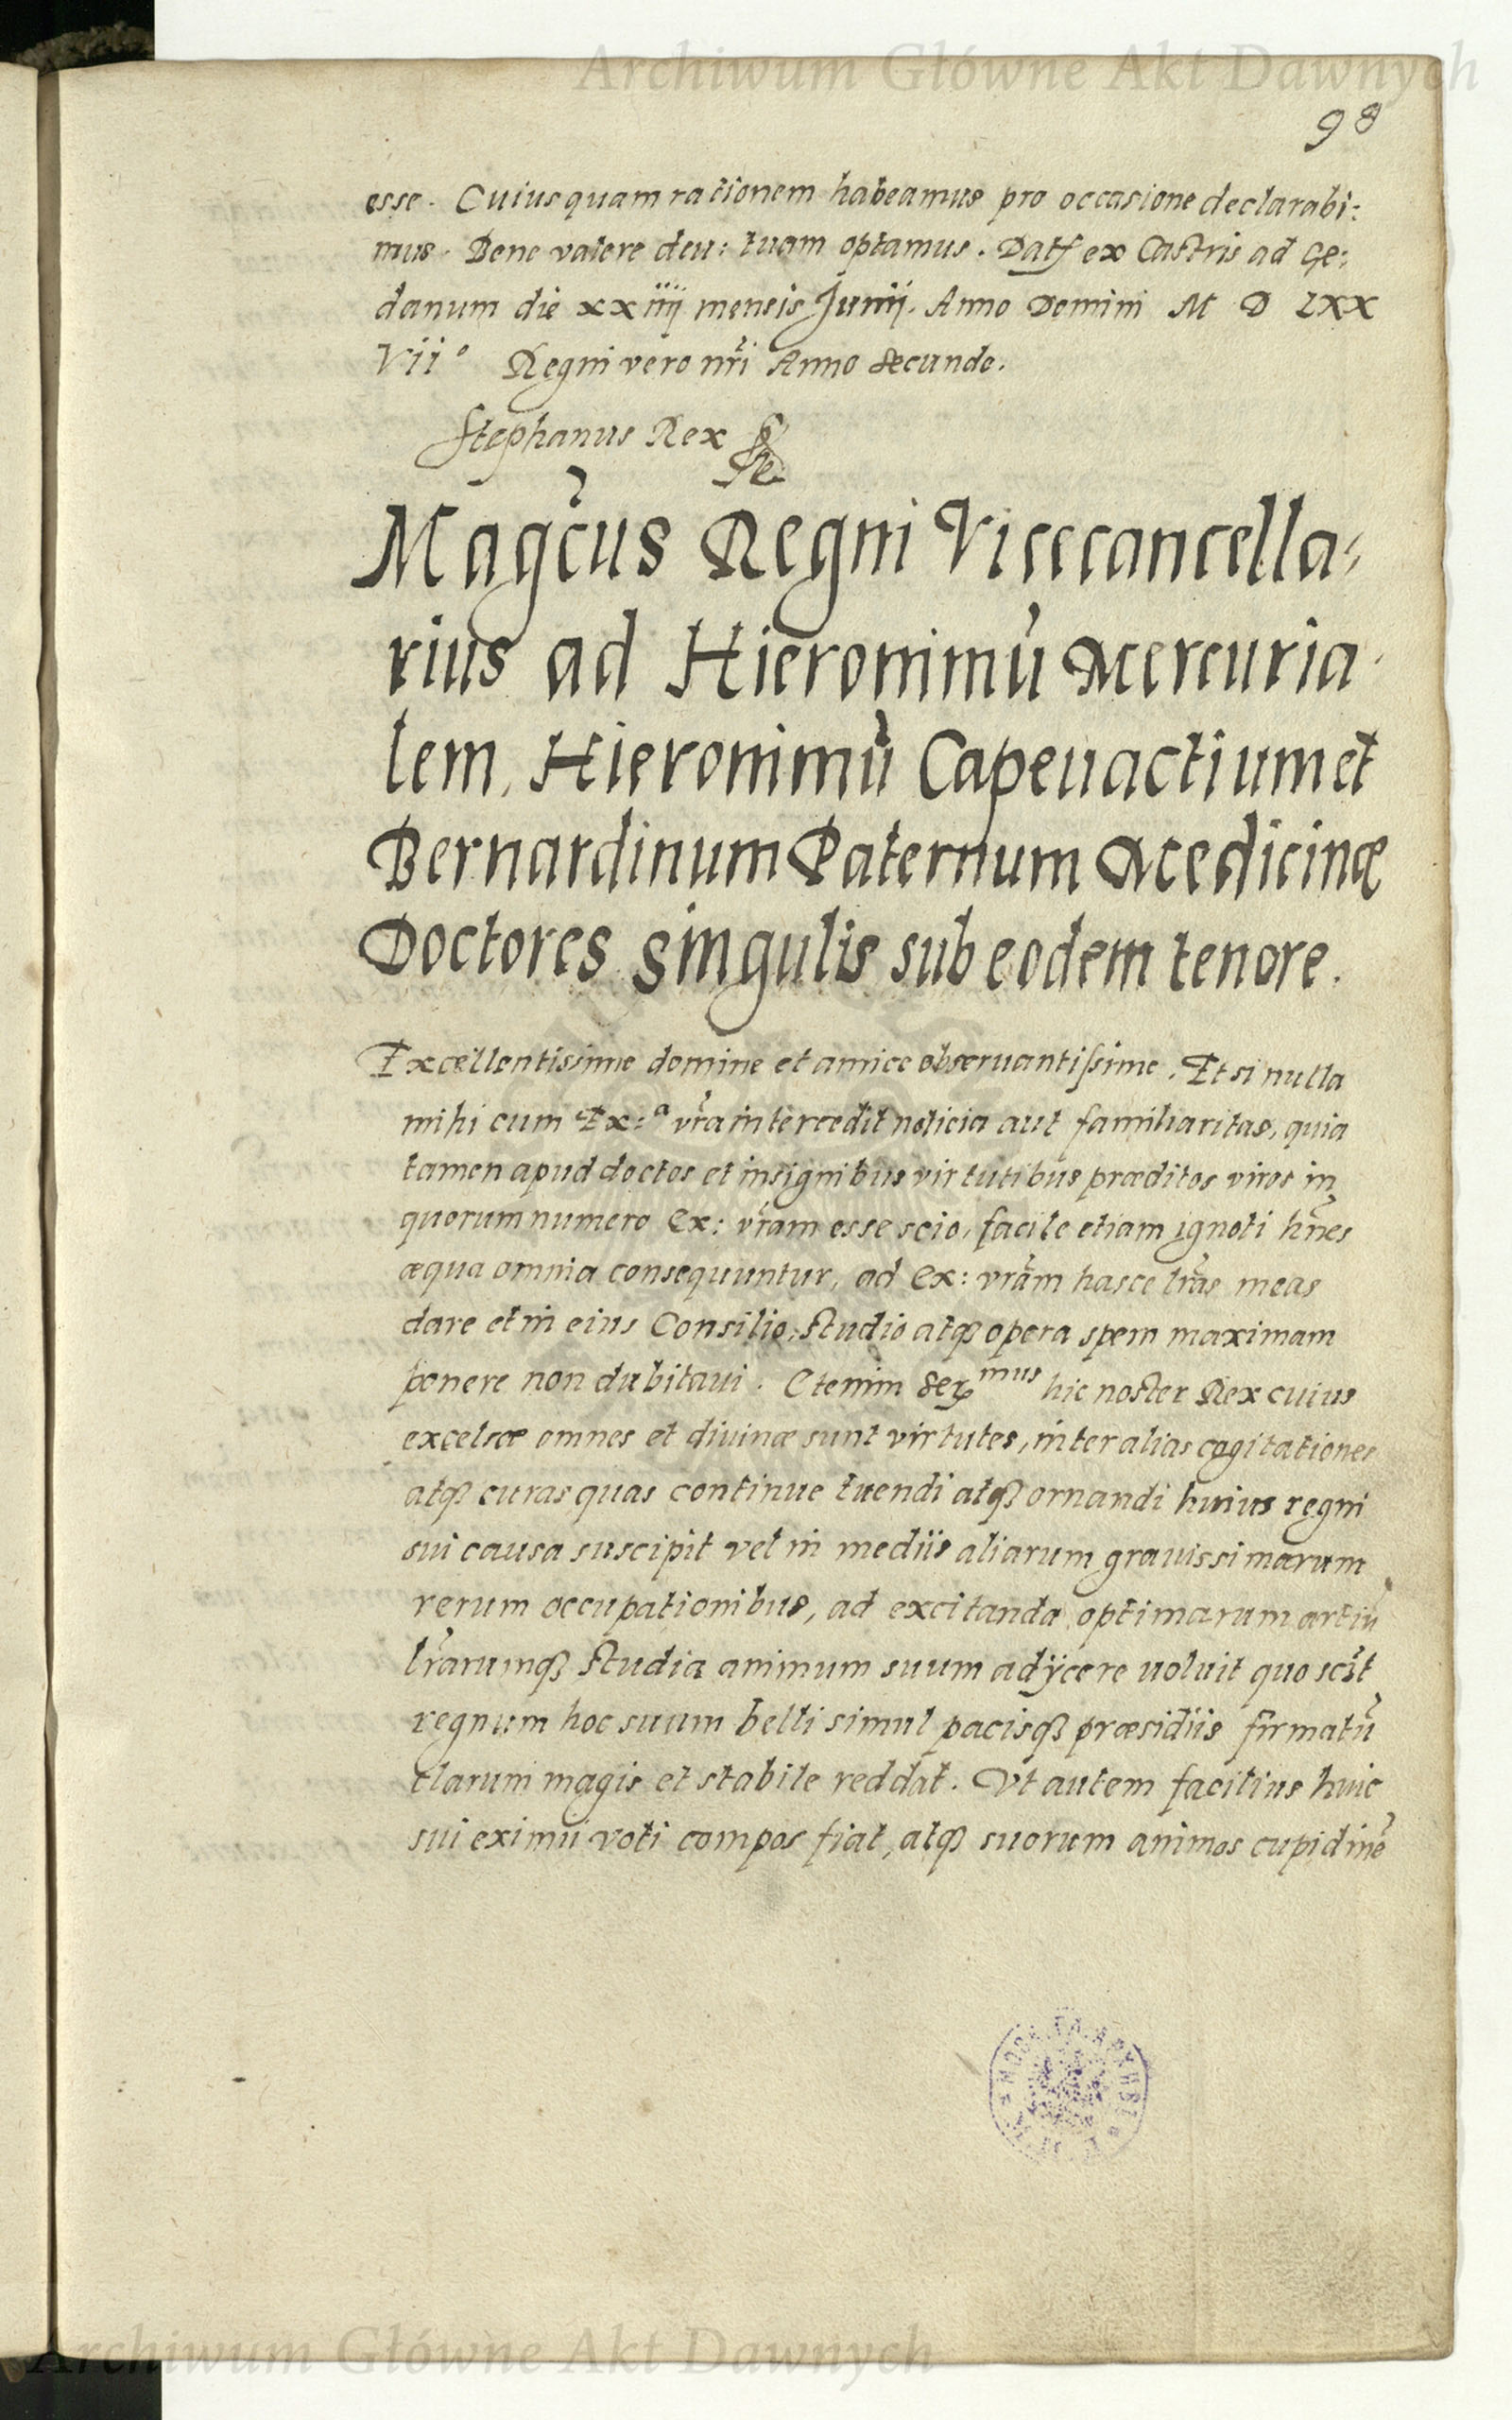 Archiwum Główne Akt Dawnych
98
esse. Cuius quam rationem habeamus pro occasione declarabi:
mus. Bene valere deu: tuam optamus. Datꝭ ex Castris ad Ge:
danum die xxiiij mensis Junij. Anno Domini M D LXX
Vii° Regni vero nr̃i Anno secundo.
Stephanus Rex
Magc̃us Regni Vicecancella-
rius ad Hieronimũ Mercuria-
lem, Hieronimũ Capeuactium et
Bernardinum Paternum Medicinæ
Doctores singulis sub eodem tenore.
Excellentissime domine et amice obseruantissime. Et si nulla
mihi cum Ex:ª vr̃a intercedit noticia aut familiaritas, quia
tamen apud doctos et insignibus virtutibus præditos viros in
quorum numero Ex: vr̃am esse scio, facile etiam ignoti hñes
æqua omnia consequuntur, ad Ex: vr̃am hasce lr̃as meas
dare et in eius Consilio, studio atqȝ opera spem maximam
ponere non dubitaui. Etenim Serᵐᵘˢ hic noster Rex cuius
excelsæ omnes et diuinæ sunt virtutes, inter alias cogitationes
atqȝ curas quas continue tuendi atqȝ ornandi huius regni
sui causa suscipit vel in mediis aliarum grauissimarum
rerum occupationibus, ad excitanda optimarum artiũ
lr̃arumqȝ studia animum suum adijcere uoluit quo sc̃t
regnum hoc suum belli simul pacisqȝ præsidiis firmatũ
clarum magis et stabile reddat. Vt autem facilius huic
sui eximii voti compos fiat, atqȝ suorum animos cupidinẽ
Archiwum Główne Akt Dawnych